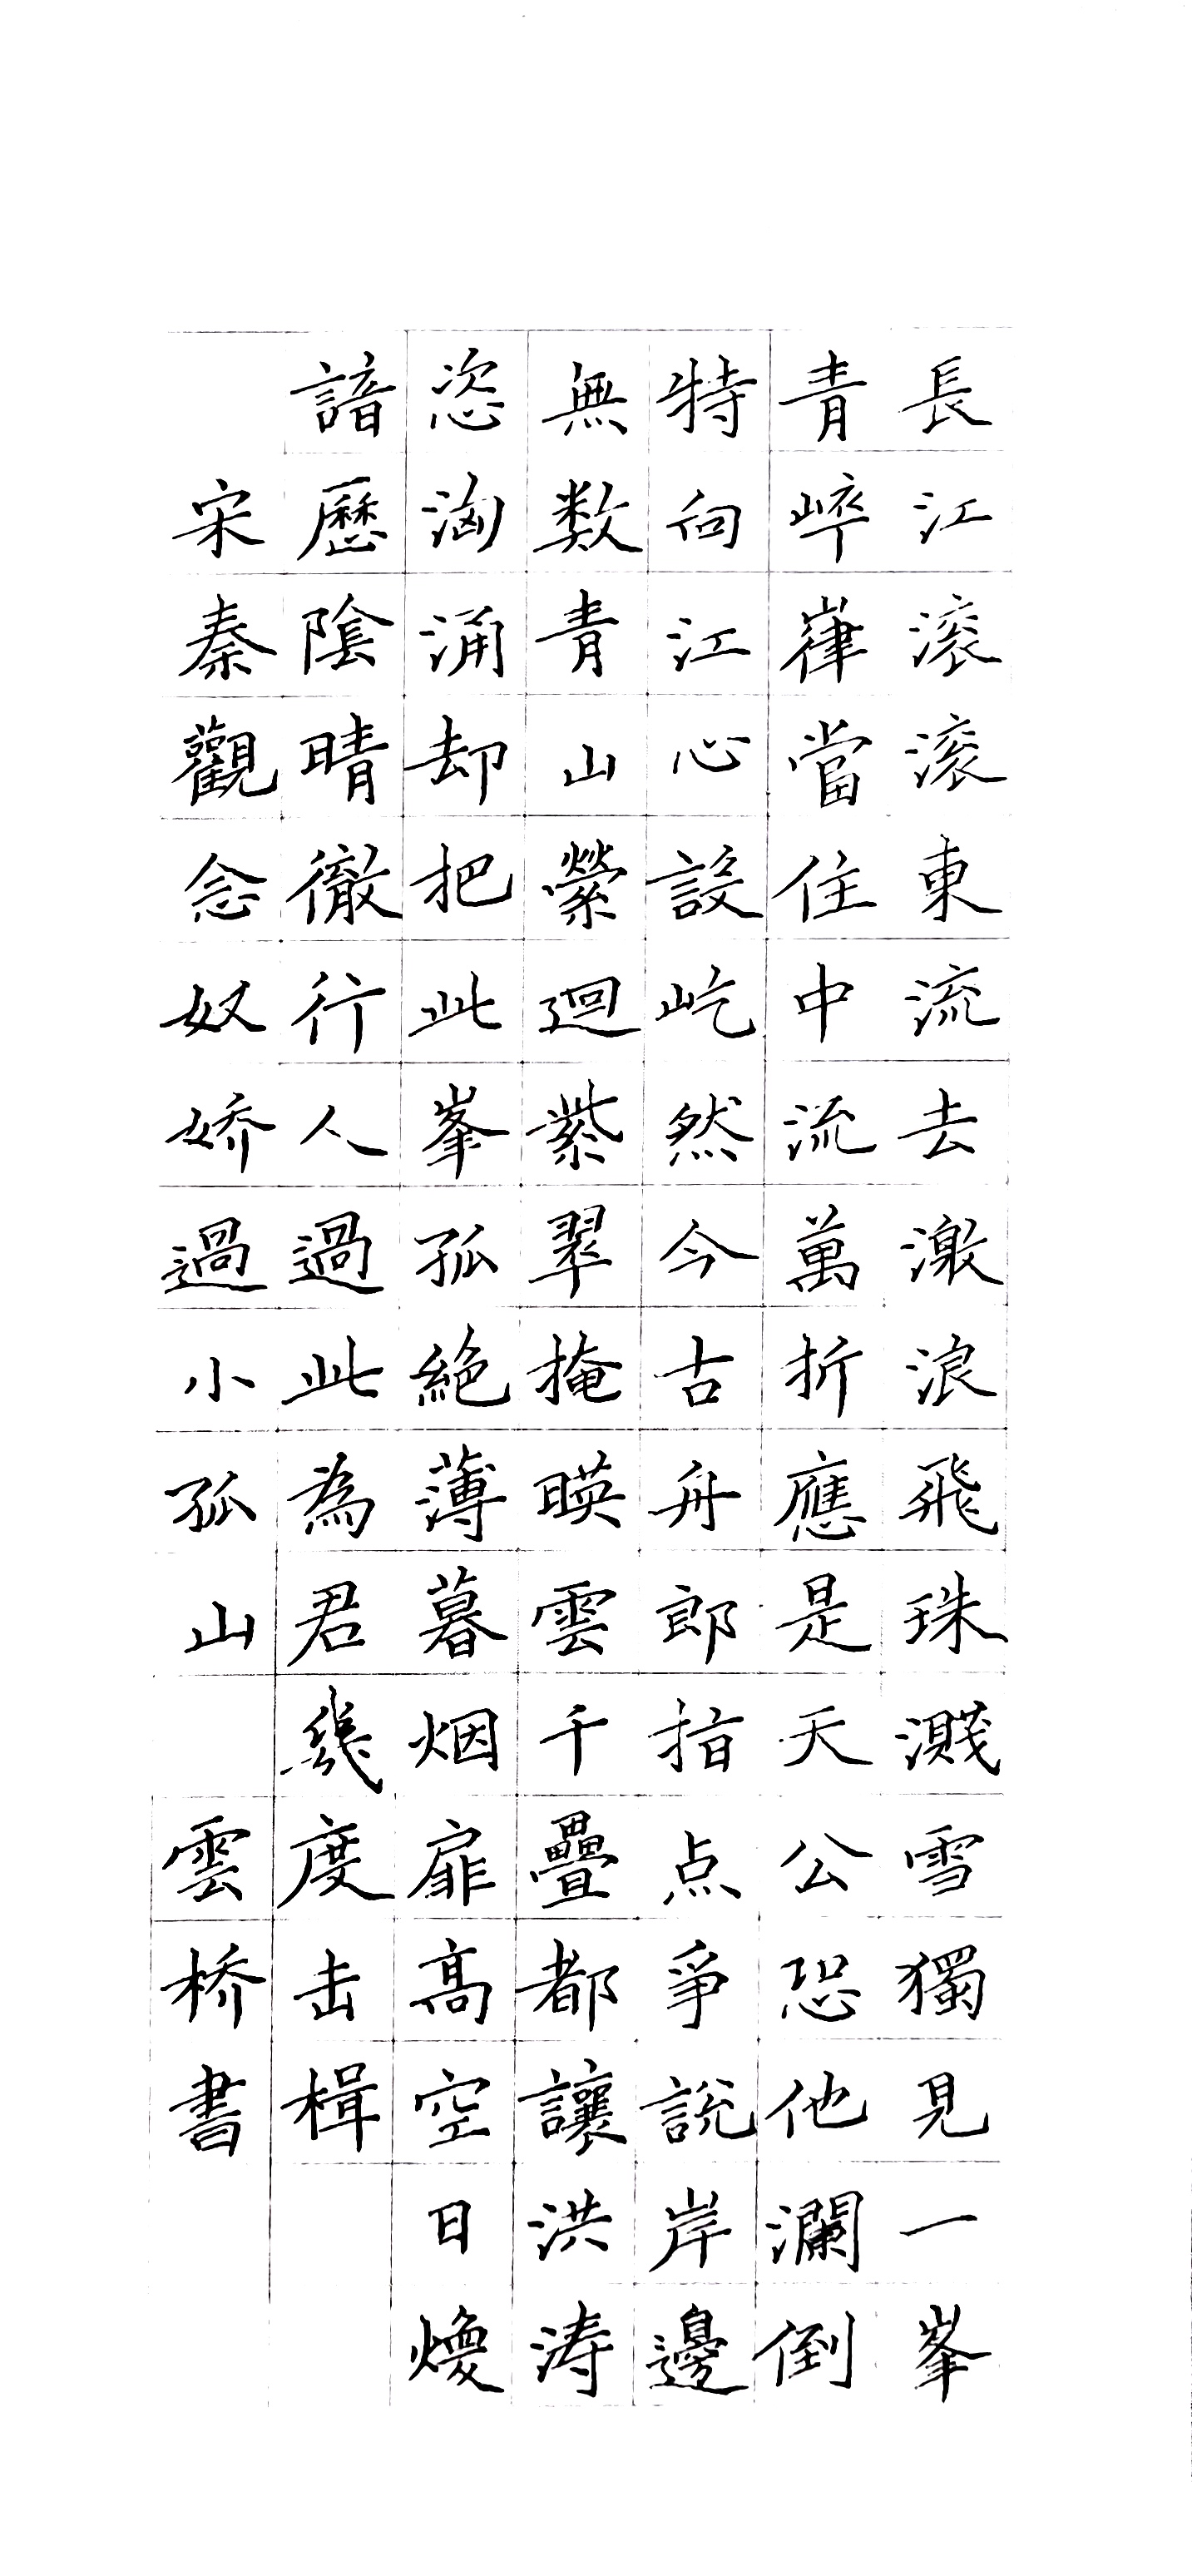 長江滚滚東流去激浪飛珠濺雪獨見一峯
青崒嵂當住中流萬折應是天公恐他瀾倒
特向江心設屹然今古舟郎指点爭說岸邊
無数青山縈迴紫翠掩映雲千疊都讓洪涛
恣洶涌却把此峯孤絶薄暮烟扉高空日煥
諳歷陰晴徹行人過此為君幾度击楫
宋秦觀念奴娇過小孤山雲桥書